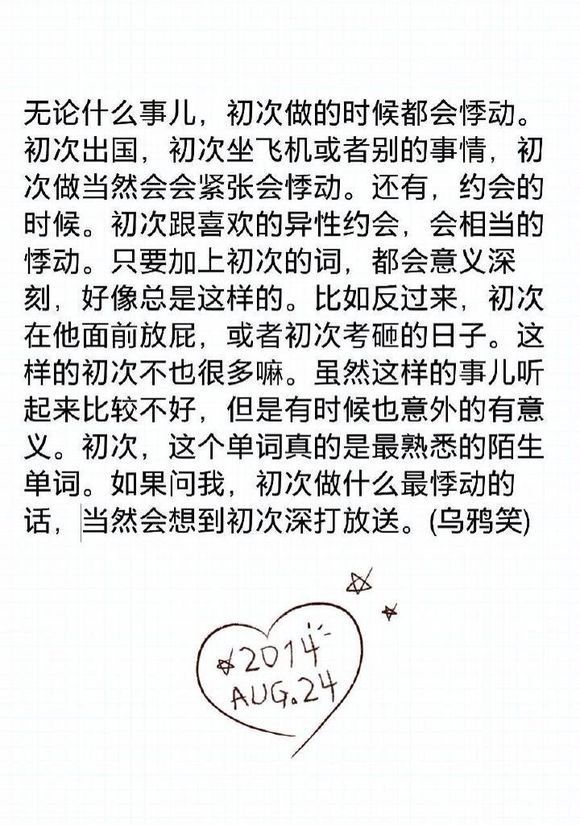 无论什么事儿，初次做的时候都会悸动。
初次出国，初次坐飞机或者别的事情，初
次做当然会会紧张会悸动。还有，约会的
时候。初次跟喜欢的异性约会，会相当的
悸动。只要加上初次的词，都会意义深
刻，好像总是这样的。比如反过来，初次
在他面前放屁，或者初次考砸的日子。这
样的初次不也很多嘛。虽然这样的事儿听
起来比较不好，但是有时候也意外的有意
义。初次，这个单词真的是最熟悉的陌生
单词。如果问我，初次做什么最悸动的
话，当然会想到初次深打放送。(乌鸦笑)
2014
AUG.24